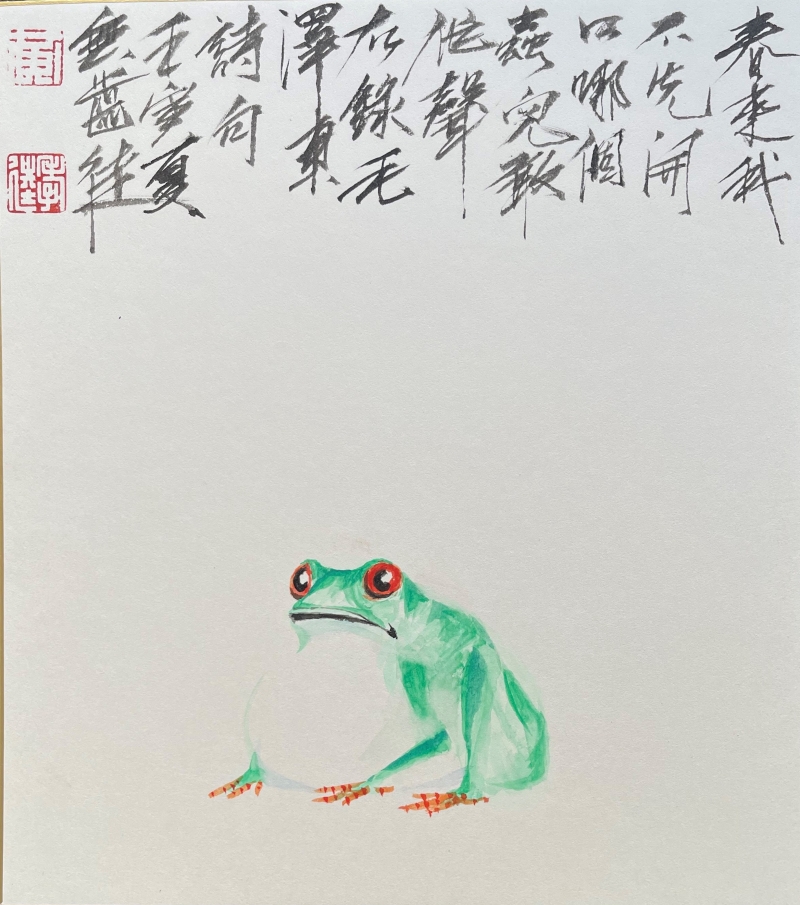 春來我
不先開
口哪個
蟲兒敢
作聲
右錄毛
澤東
詩句
壬寅夏
無藍